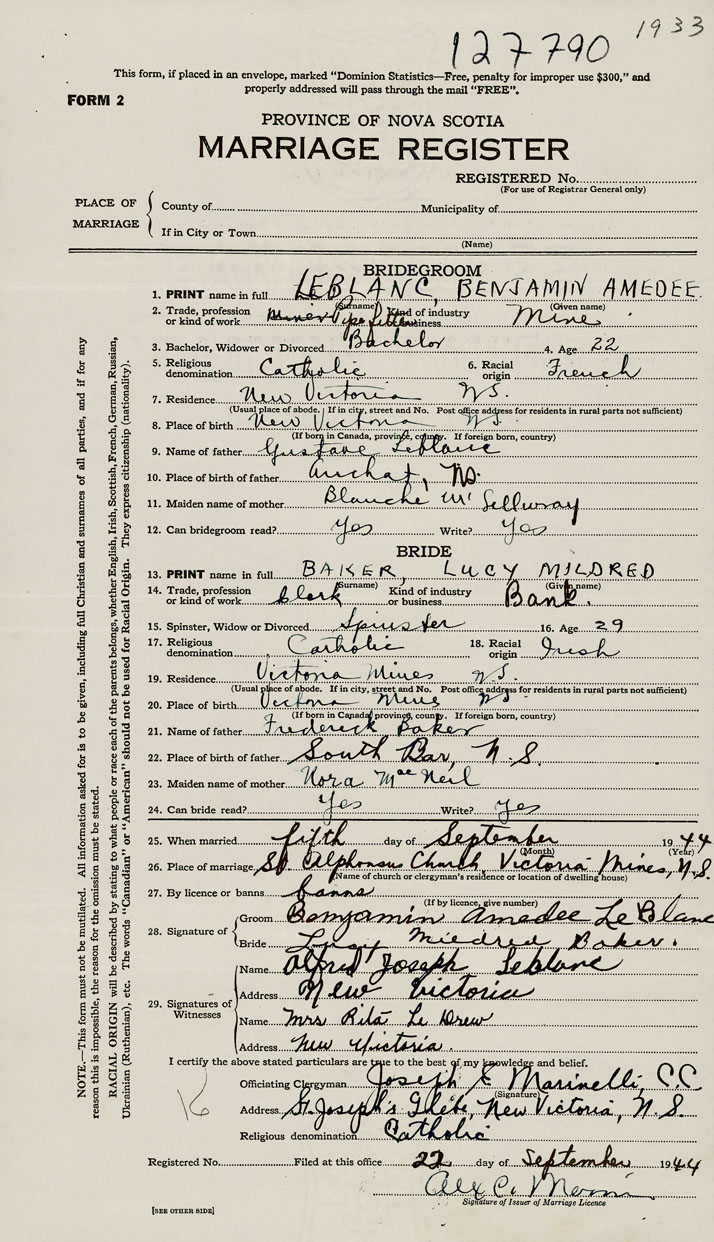 1933
127790
This form, if placed in an envelope, marked "Dominion Statistics—Free, penalty for improper use $300," and
properly addressed will pass through the mail "FREE".
FORM 2
PROVINCE OF NOVA SCOTIA
MARRIAGE REGISTER
REGISTERED No.
(For use of Registrar General only)
PLACE OF MARRIAGE
County of Municipality of
If in City or Town
(Name)
BRIDEGROOM
1. PRINT name in full LEBLANC, BENJAMIN AMEDEE
(Surname) (Given name)
2. Trade, profession or kind of work Miner Pipe fitter Kind of industry or business Mine
3. Bachelor, Widower or Divorced Bachelor 4. Age 22
5. Religious denomination Catholic 6. Racial origin French
7. Residence New Victoria N.S.
(Usual place of abode. If in city, street and No. Post office address for residents in rural parts not sufficient)
8. Place of birth New Victoria N.S.
(If born in Canada, province, county. If foreign born, country)
9. Name of father Gustave Leblanc
10. Place of birth of father Arichat, N.S.
11. Maiden name of mother Blanche Mc
12. Can bridegroom read? Yes Write? Yes
BRIDE
13. PRINT name in full BAKER, LUCY MILDRED
(Surname) (Given name)
14. Trade, profession or kind of work Clerk Kind of industry or business Bank.
15. Spinster, Widow or Divorced Spinster 16. Age 29
17. Religious denomination Catholic 18. Racial origin Irish
19. Residence Victoria Mines N.S.
(Usual place of abode. If in city, street and No. Post office address for residents in rural parts not sufficient)
20. Place of birth Victoria Mines N.S.
(If born in Canada, province, county. If foreign born, country)
21. Name of father Frederick Baker
22. Place of birth of father South Bar, N.S.
23. Maiden name of mother Nora MacNeil
24. Can bride read? Yes Write? Yes
25. When married fifth day of September 1944
(Month) (Year)
26. Place of marriage St. Alphonsus Church Victoria Mines, N.S.
(Name of church or clergyman's residence or location of dwelling house)
27. By licence or banns banns
(If by licence, give number)
28. Signature of
Groom Benjamin Amedee LeBlanc
Bride Lucy Mildred Baker.
29. Signatures of Witnesses
Name Alfred Joseph Leblanc
Address New Victoria
Name Mrs Rita Le Drew
Address New Victoria.
I certify the above stated particulars are true to the best of my knowledge and belief.
Officiating Clergyman Joseph E Marinelli, C.C.
(Signature)
Address St. Joseph's Glebe, New Victoria, N.S.
Religious denomination Catholic
16
Registered No. Filed at this office 22 day of September 1944
Alex C.
Signature of Issuer of Marriage Licence
[SEE OTHER SIDE]
NOTE.—This form must not be mutilated. All information asked for is to be given, including full Christian and surnames of all parties, and if for any
reason this is impossible, the reason for the omission must be stated.
RACIAL ORIGIN will be described by stating to what people or race each of the parents belongs, whether English, Irish, Scottish, French, German, Russian,
Ukrainian (Ruthenian), etc. The words "Canadian" or "American" should not be used for Racial Origin. They express citizenship (nationality).